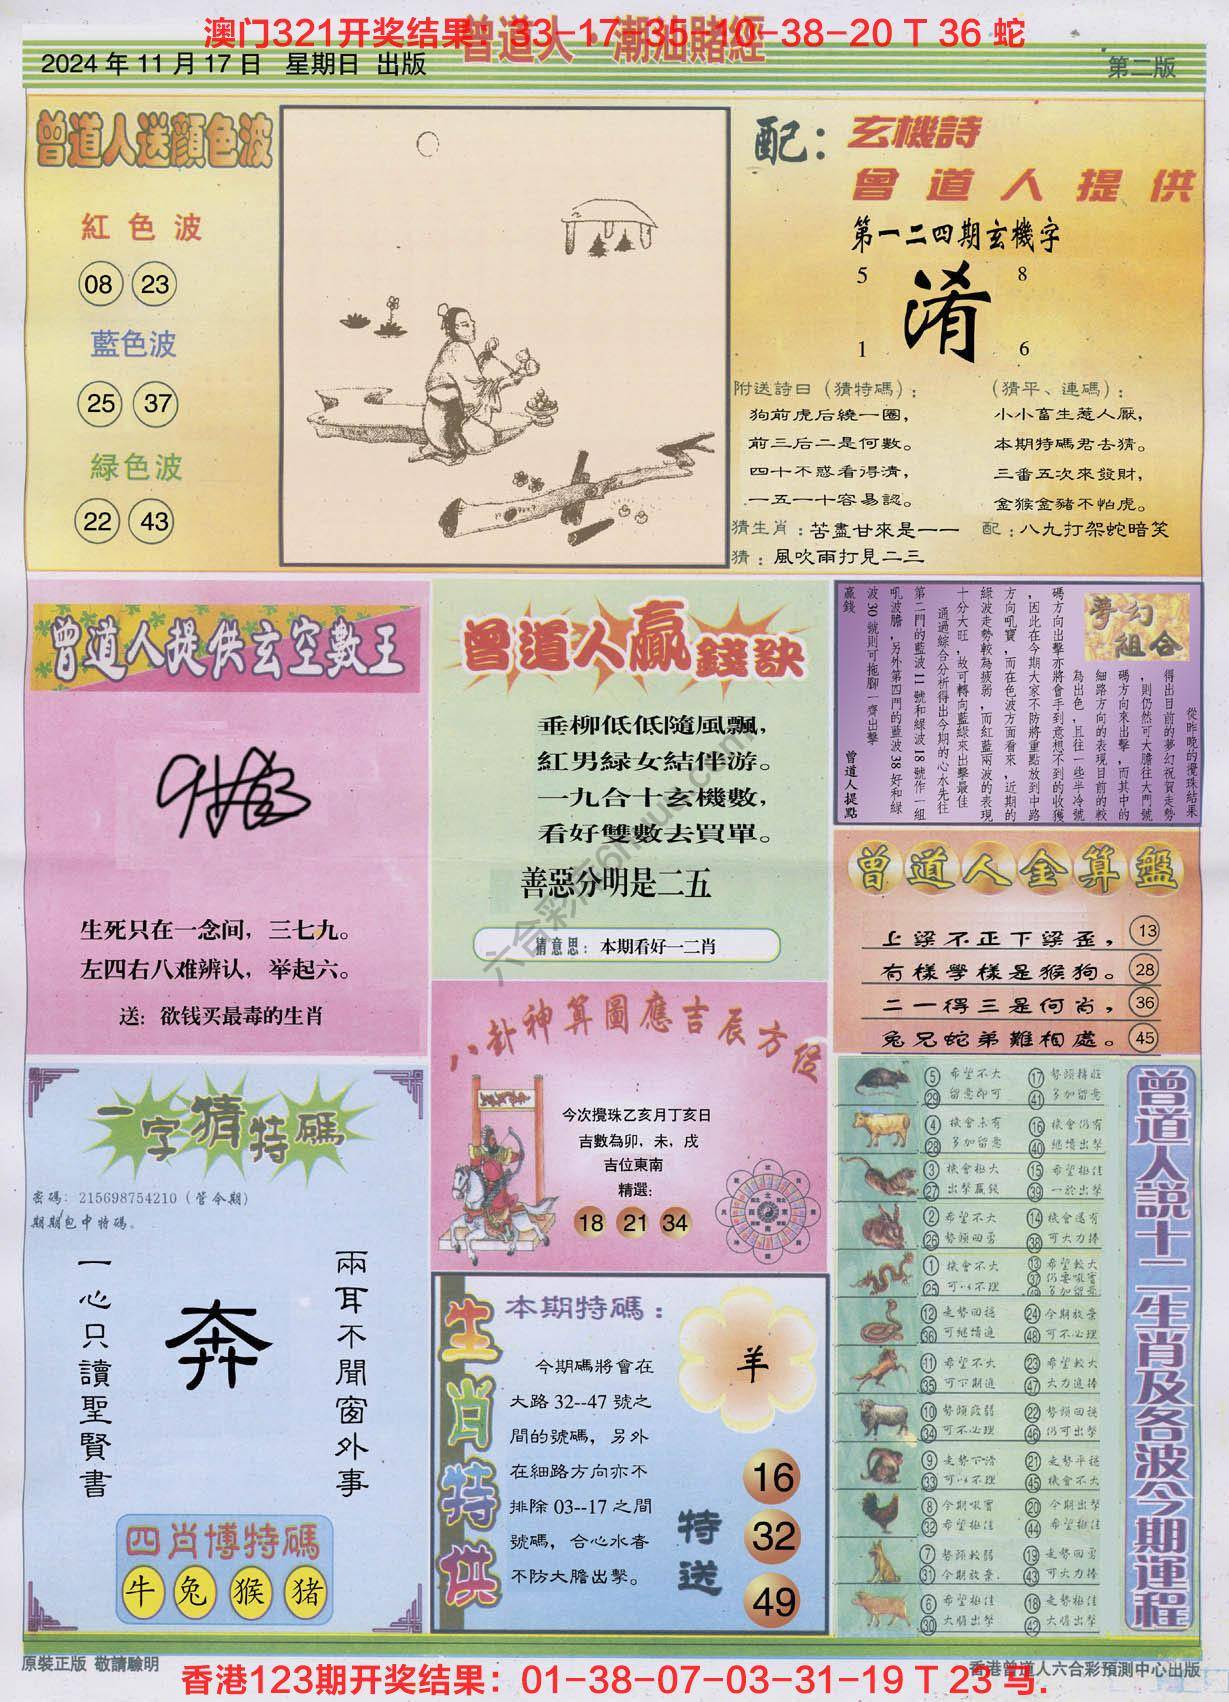 澳门321开奖结果：33-17-35-10-38-20 T 36 蛇
曾道人·潮汕賭經
2024 年 11 月 17 日 星期日 出版
第二版
曾道人送顏色波
紅色波
08 23
藍色波
25 37
緑色波
22 43
配：玄機詩
曾道人提供
第一二四期玄機字
5 8
淆
1 6
附送詩曰（猜特碼）：
狗前虎后繞一圈，
前三后二是何數。
四十不惑看得清，
一五一十容易認。
（猜平、連碼）：
小小畜生惹人厭，
本期特碼君去猜。
三番五次來發財，
金猴金豬不怕虎。
猜生肖：苦盡甘來是一一
配：八九打架蛇暗笑
猜：風吹雨打見二三
曾道人提供玄空數王
生死只在一念间，三七九。
左四右八难辨认，举起六。
送：欲钱买最毒的生肖
曾道人贏錢訣
垂柳低低隨風飄，
紅男緑女結伴游。
一九合十玄機數，
看好雙數去買單。
善惡分明是二五
猜意思：本期看好一二肖
夢幻組合
從昨晚的攪珠結果
得出目前的夢幻祝賀走勢
，則仍然可大膽往大門號
碼方向來出擊，而其中的
細路方向的表現目前的較
為出色，且往一些半冷號
碼方向出擊亦將會手到意想不到的收獲
，因此在今期大家不防將重點放到中路
方向吼寶，而在色波方面看來，近期的
緑波走勢較為疲弱，而紅藍兩波的表現
十分大旺，故可轉向藍緑來出擊最佳
通過綜合分析得出今期的心水先往
第二門的藍波 11 號和緑波 18 號作一組
吼波膽，另外第四門的藍波 38 好和緑
波 30 號則可拖腳一齊出擊
贏錢
曾道人提點
曾道人金算盤
上梁不正下梁歪， 13
有樣學樣是猴狗。 28
二一得三是何肖， 36
兔兄蛇弟難相處。 45
八卦神算圖應吉辰方位
今次攪珠乙亥月丁亥日
吉數為卯，未，戌
吉位東南
精選：
18 21 34
一字猜特碼
密碼：215698754210（管今期）
期期包中特碼。
兩耳不聞窗外事
奔
一心只讀聖賢書
四肖博特碼
牛 兔 猴 猪
生肖特供
本期特碼：
今期碼將會在
大路 32--47 號之
間的號碼，另外
在細路方向亦不
排除 03--17 之間
號碼，合心水者
不防大膽出擊。
羊
特送
16
32
49
曾道人説十二生肖及各波今期運程
5 希望不大 17 勢頭轉旺
29 留意即可 41 多加留意
4 機會未有 16 機會仍有
28 多加留意 40 繼續出擊
3 機會極大 15 希望極佳
27 出擊贏錢 39 一於出擊
2 希望不大 14 機會還有
26 勢頭回勇 38 可大力捧
1 機會不大 13 希望較大
25 可以不理
12 走勢回穩 24 今期放棄
36 可繼續追 48 可不必理
11 希望不大 23 希望較大
35 可下期追 47 大力追捧
10 勢頭疲弱 22 勢頭回穩
34 可不必理 46 仍可出擊
9 走勢下滑 21 走勢平穩
33 可以不理 45 機會不大
8 今期吼寶 20 今期出擊
32 希望極佳 44 希望極佳
7 勢頭較弱 19 走勢回勇
31 今期放棄. 43 可大力捧
6 希望極佳 18 走勢極佳
30 大膽出擊 42 大膽出擊
原裝正版 敬請驗明
香港曾道人六合彩預測中心出版
香港123期开奖结果：01-38-07-03-31-19 T 23 马.